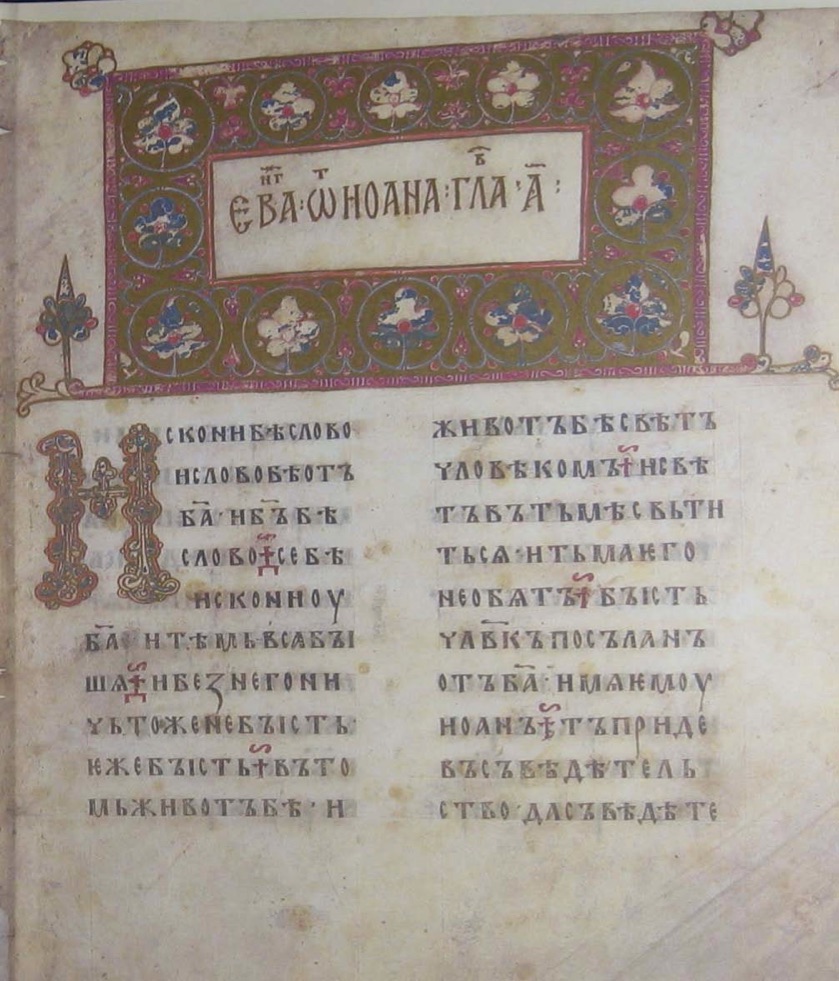 ЕВАⷩ҇ⷢ҇: Ѿ ИОАНА: ГЛАⷡ҇· А҃:
ИСКОНИБѢСЛОВО
ИСЛОВОБѢОТЪ
БА҃·ИБЪ҃БѢ
СЛОВО СЕБѢ
ИСКОНИОУ
БА҃·ИТѢМЬВСѦБꙐ
ШѦ ИБЕꙁНЕГОНИ
ЧЬТОЖЕНЕБꙐСТЬ·
ѤЖЕБꙐСТЬ ВЪТО
МЬЖИВОТЪБѢ·И
ЖИВОТЪБѢСВѢТЪ
ЧЛОВѢКОМЪ ИСВѢ
ТЪВЪТЬМѢСВЬТИ
ТЬСѦ·ИТЬМАѤГО
НЕОБѦТЪ БꙐСТЬ
ЧЛ҃ВКЪПОСЪЛАНЪ
ОТЪБА҃·ИМѦѤМОУ
ИОАНЪ ТЪПРИДЕ
ВЪСЪВѢДѢТЕЛЬ
СТВО·ДАСЪВѢДѢТЕ